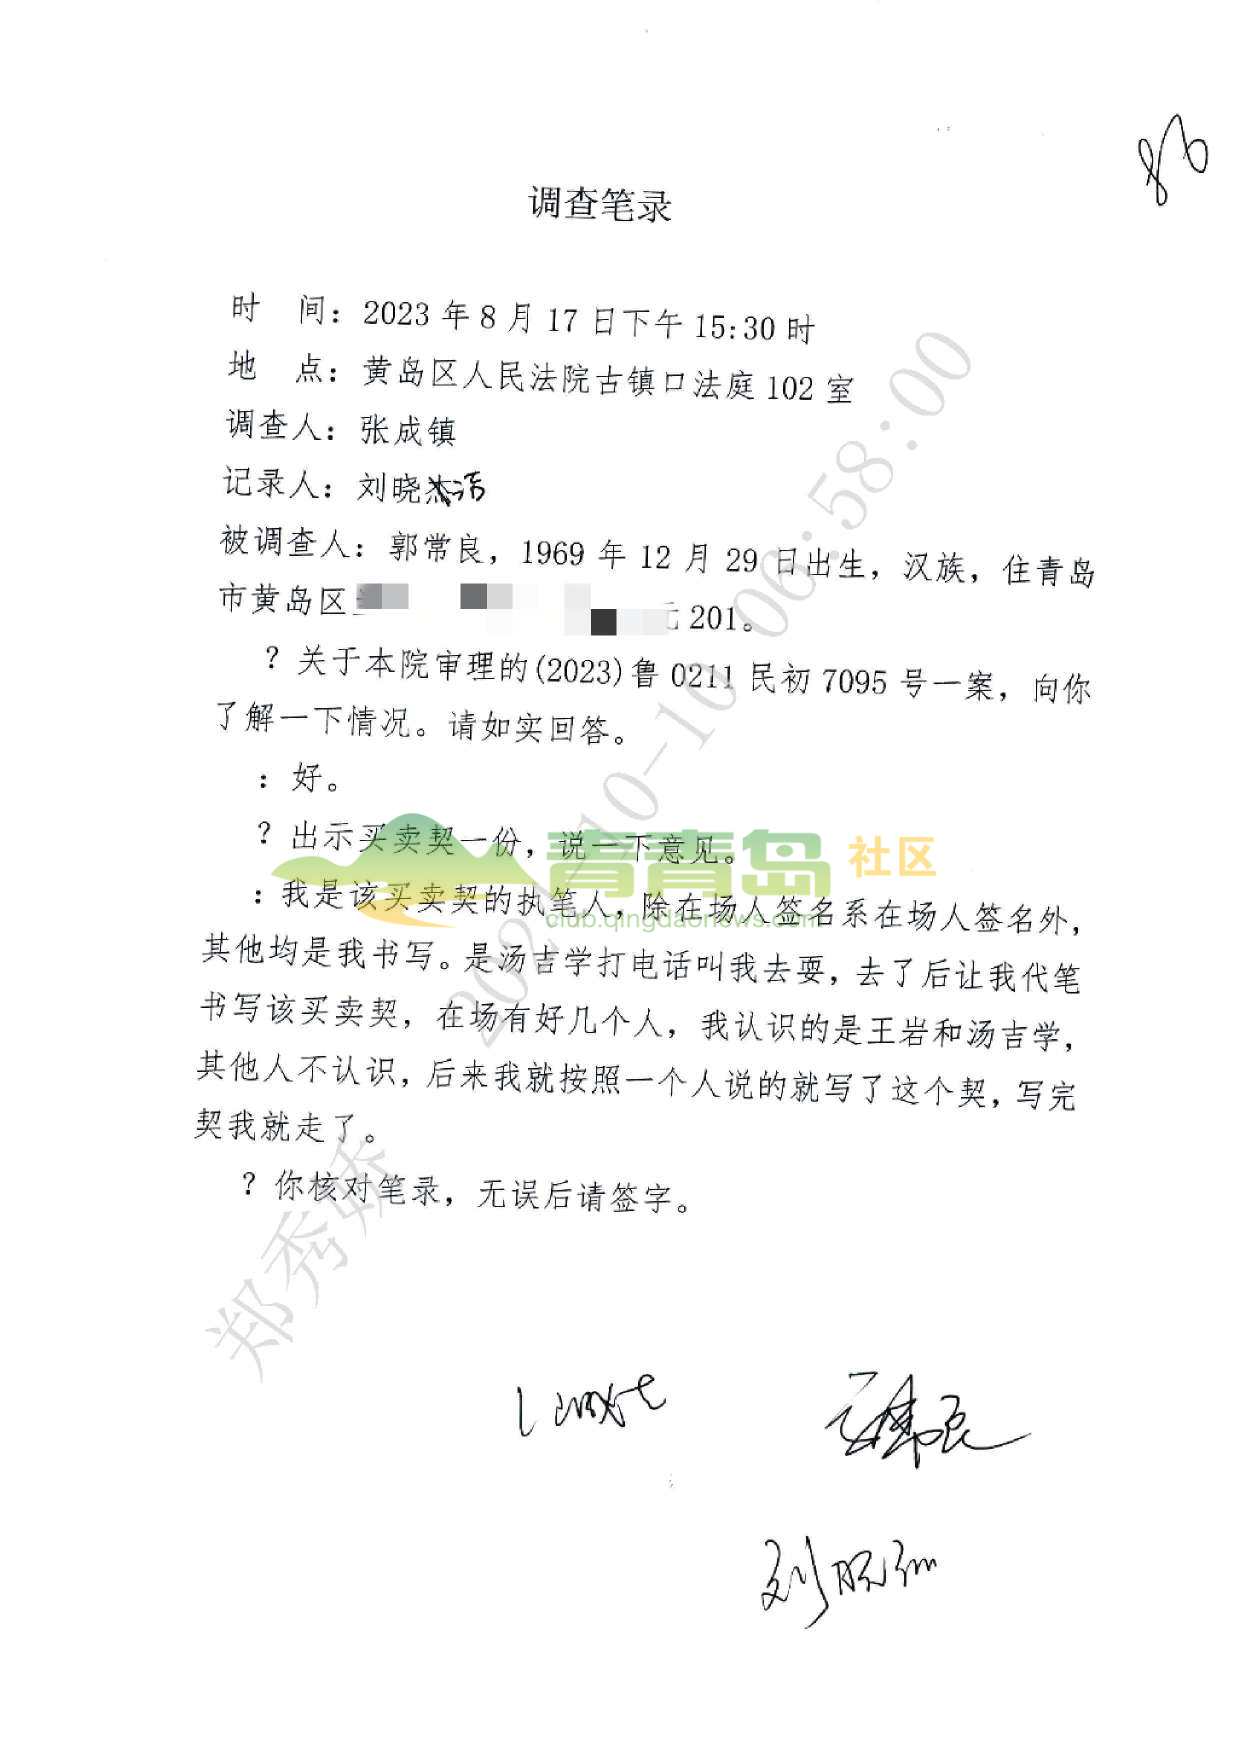 86
调查笔录
时　间：2023年8月17日下午15:30时
地　点：黄岛区人民法院古镇口法庭102室
调查人：张成镇
记录人：刘晓杰洁
被调查人：郭常良，1969年12月29日出生，汉族，住青岛
市黄岛区 元201。
？关于本院审理的(2023)鲁0211民初7095号一案，向你
了解一下情况。请如实回答。
：好。
？出示买卖契一份，说一下意见。
青青岛 社区
club.qingdaonews.com
：我是该买卖契的执笔人，除在场人签名系在场人签名外，
其他均是我书写。是汤吉学打电话叫我去耍，去了后让我代笔
书写该买卖契，在场有好几个人，我认识的是王岩和汤吉学，
其他人不认识，后来我就按照一个人说的就写了这个契，写完
契我就走了。
？你核对笔录，无误后请签字。
郑秀娇
10-10 06:58:00